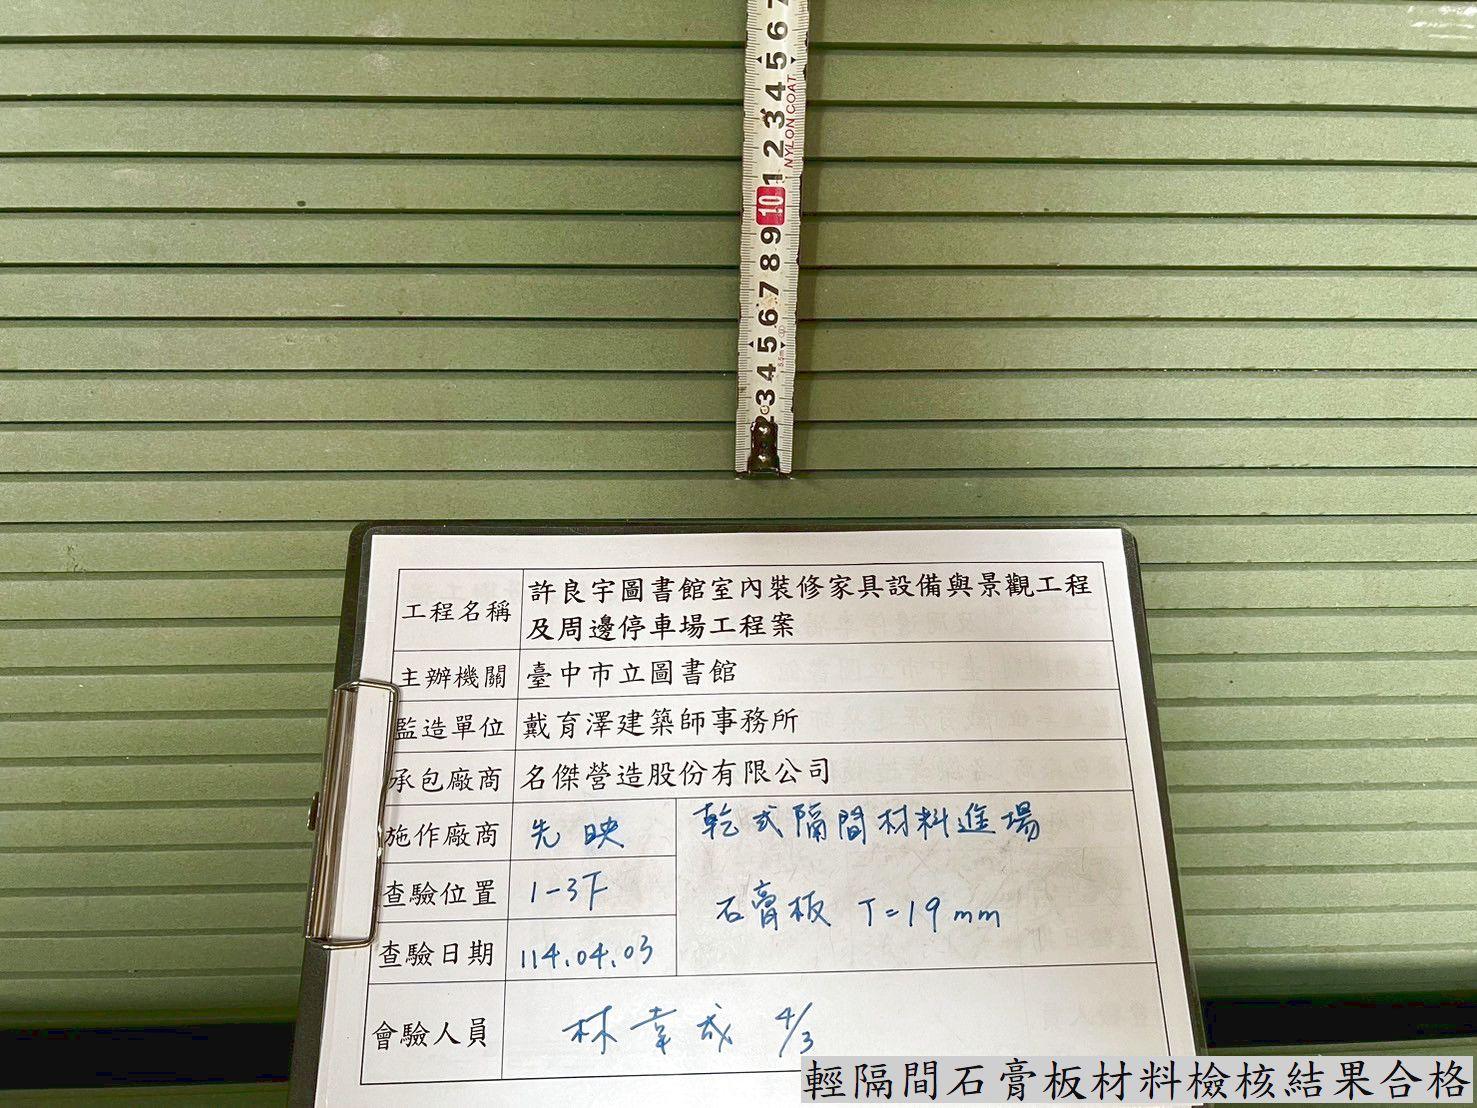 7
6
5
4
3
2
1
10
9
8
7
6
5
4
3
2
NYLON COAT
5.5m
工程名稱 許良宇圖書館室內裝修家具設備與景觀工程
及周邊停車場工程案
主辦機關 臺中市立圖書館
監造單位 戴育澤建築師事務所
承包廠商 名傑營造股份有限公司
施作廠商 先映 乾式隔間材料進場
查驗位置 1-3F 石膏板 T=19mm
查驗日期 114.04.03
會驗人員 林幸成 4/3
輕隔間石膏板材料檢核結果合格